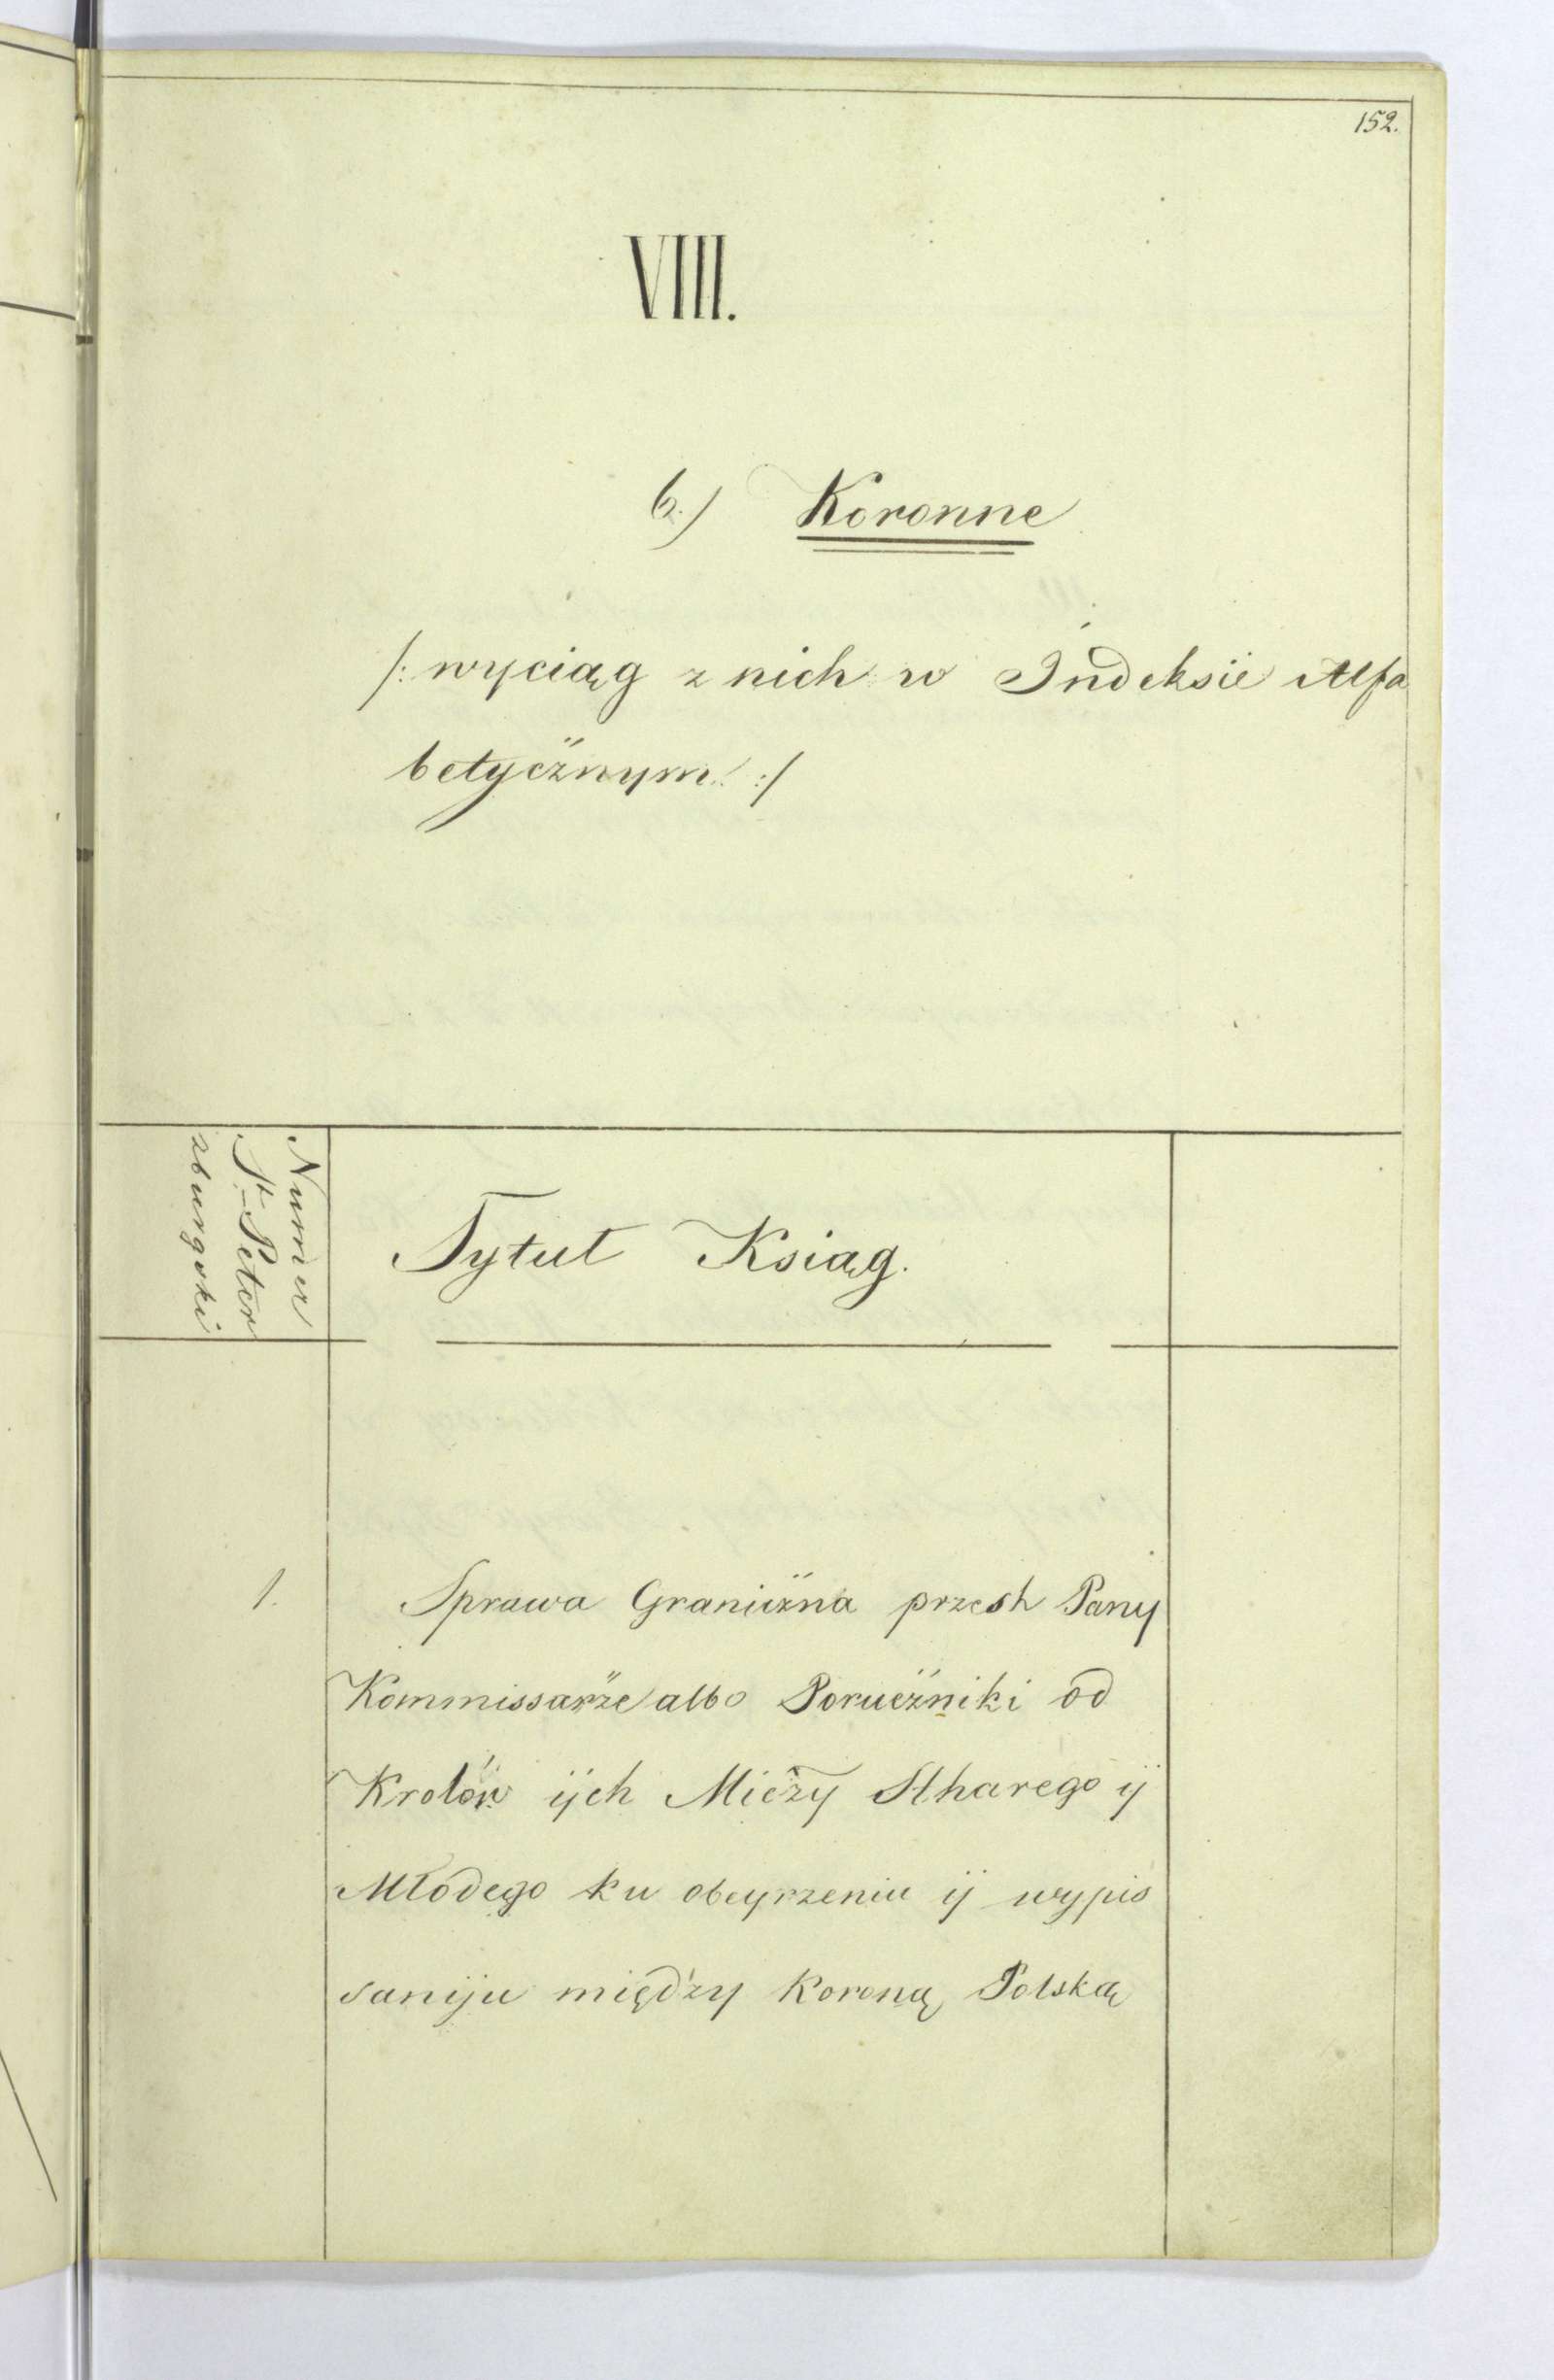 152.
VIII.
b.) Koronne
/: wyciąg z nich w Indeksie Alfa
betycżnym :/
Numer
St. Peter
zburgski
Tytuł Ksiąg.
1.
Sprawa Granicżna przesh Pany
Kommissarże albo Porucżniki od
Krolów ijch Miczy Stharego ij
Młodego ku obeyrzeniu ij wypis
saniju między Koroną Polską